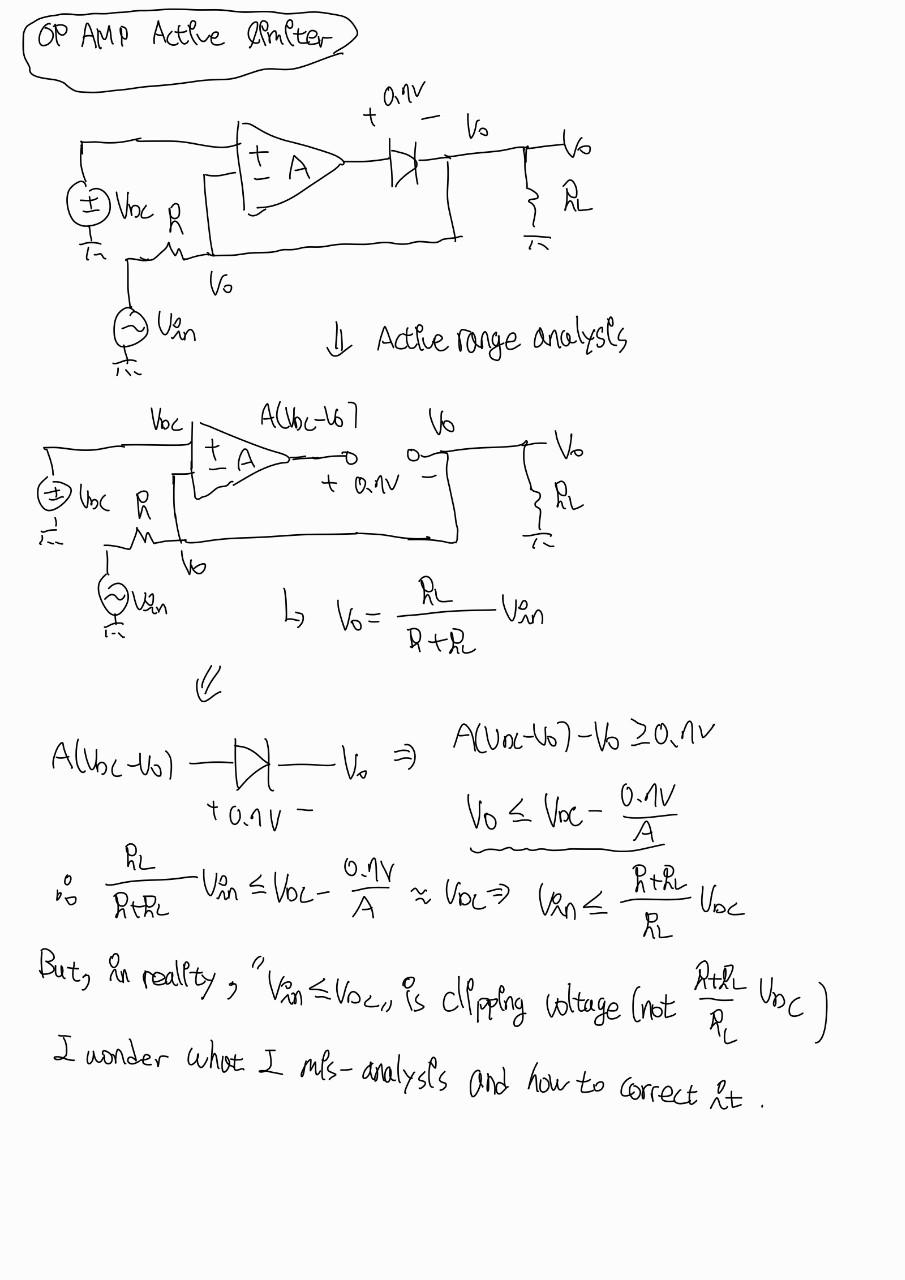 OP AMP Active limiter
+ 0.7V − V₀
+ − A V₀
± V_DC R R_L
V₀
~ Vin
⇓ Active range analysis
V_DC A(V_DC-V₀) V₀
+ − A V₀
± V_DC R + 0.7V − R_L
V₀
~ Vin ↳ V₀ = R_L/(R+R_L) Vin
⇙
A(V_DC-V₀) V₀ ⇒ A(V_DC-V₀)-V₀ ≥ 0.7V
+ 0.7V −
V₀ ≤ V_DC - 0.7V/A
∴ R_L/(R+R_L) Vin ≤ V_DC - 0.7V/A ≈ V_DC ⇒ Vin ≤ (R+R_L)/R_L V_DC
But, in reality, "Vin ≤ V_DC" is clipping voltage (not (R+R_L)/R_L V_DC)
I wonder what I mis-analysis and how to correct it.